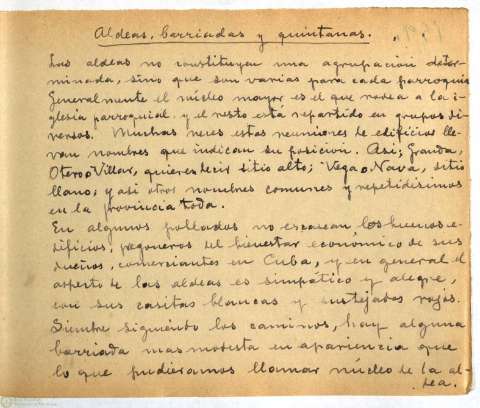 Aldeas, barriadas y quintanas.
Las aldeas no constituyen una agrupación deter-
minada, sino que son varias para cada parroquia
Generalmente el núcleo mayor es el que rodea a la i-
glesia parroquial y el resto está repartido en grupos di-
versos. Muchas veces estas reuniones de edificios lle-
van nombres que indican su posición. Así; Granda,
Otero o Villar, quieres decir sitio alto; Vega o Nava, sitio
llano; y así otros nombres comunes y repetidísimos
en la provincia toda.
En algunos poblados no escasean los buenos e-
dificios, pregoneros del bienestar económico de sus
dueños, comerciantes en Cuba, y en general el
aspecto de las aldeas es simpático y alegre,
con sus casitas blancas y sus tejados rojos.
Siembre siguiendo los caminos, hay alguna
barriada mas modesta en apariencia que
lo que pudieramos llamar núcleo de la al-
dea.